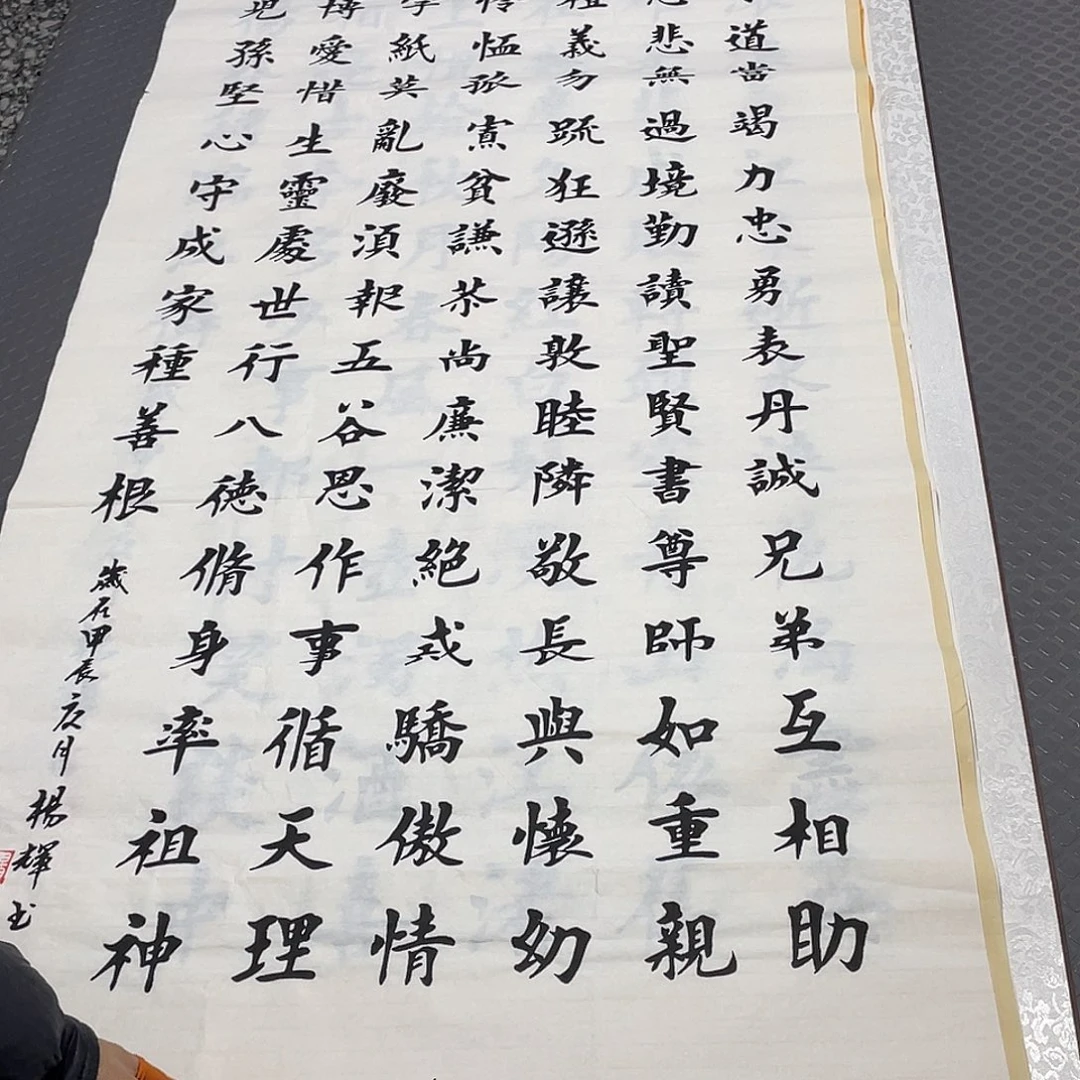 道當竭力忠勇表丹誠兄弟互相助
悲無過境勤讀聖賢書尊師如重親
義勿疏狂遜讓敦睦隣敬長與懷幼
恤孤寡貧謙恭尚廉潔絕戒驕傲情
字紙莫亂廢須報五谷恩作事循天理
愛惜生靈處世行八德脩身率祖神
兒孫堅心守成家種善根
歲在甲辰月楊輝書